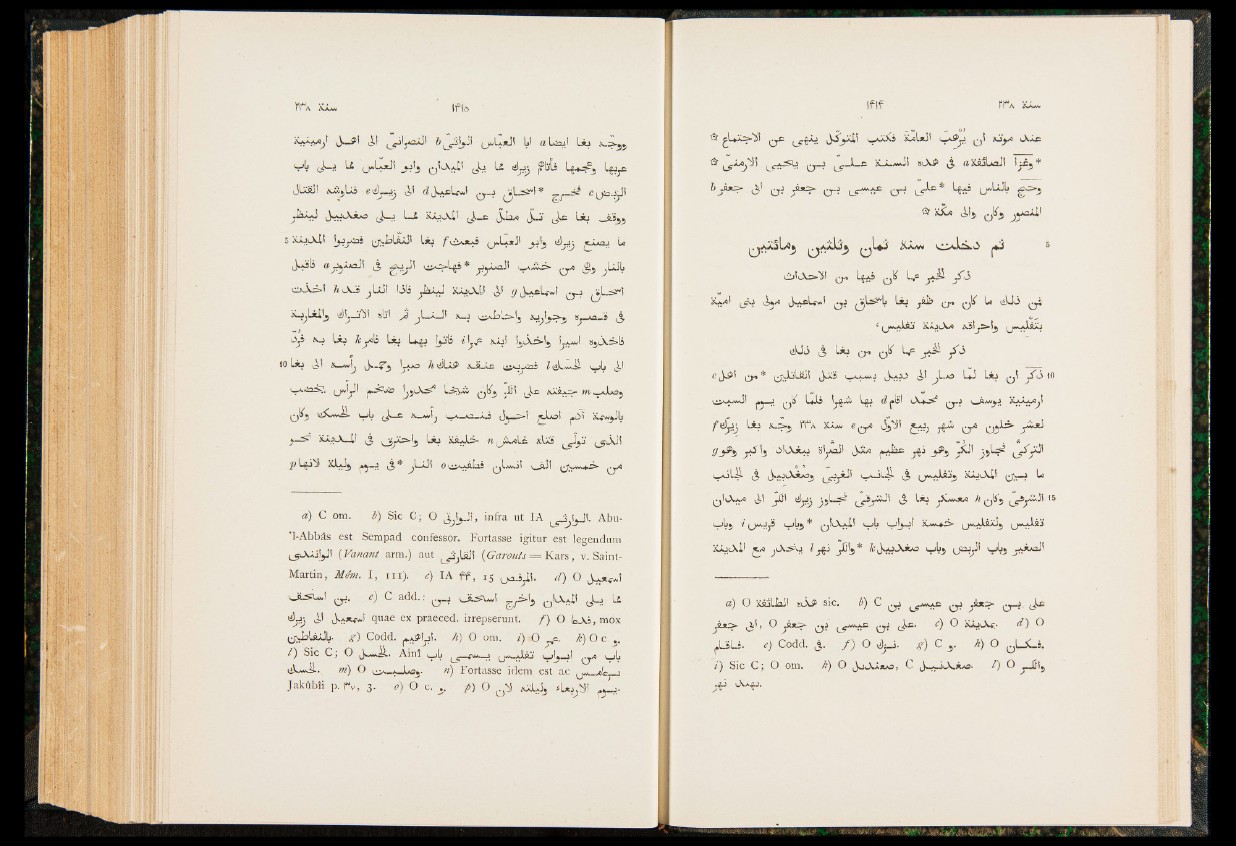 سنة ٢٣٨ ١٤١٤
عند موته ان يُرْعب العامّة فكتب المتوكّل ينهى عن الاجتماع ۞
*وغزا الصائفة a فى هذه السنة علىّ بن يحيى الارمنىّ ۞
وحجّ بالناس فيها *علىّ بن عيسى بن جعفر بن ابى جعفر b
المنصور وكان والى مكّة ۞
5 ثم دخلت سنة ثمان وثلثين ومائتين
ذكر الخبر عما كان فيها من الاحداث
فمن ذلك ما كان من ظفر بغا باسحاق بن اسماعيل مولى بنى اميّة
بتفليس واحراقه مدينة تفليس c
ذكر الخبر عما كان من بغا فى ذلك
10 ذكر ان بغا لمّا صار الى دبيل بسبب قتل القاتلين *من اهل e
ارمينية يوسف بن محمّد اقام d بها شهرا فلمّا كان يوم السبت
لعشر خلون من شهر ربيع الاوّل من e سنة ٢٣٨ وجّه بغا زيرك f
التركىّ فجاوز الكرّ وهو نهر عظيم مثل الصراة ببغداد واكبر وهو g
ما بين المدينة وتفليس فى الجانب الغربىّ وصغدبيل فى الجانب
15 الشرقىّ وكان h معسكر بغا فى الشرقىّ فجاوز زيرك الكرّ الى ميدان
تفليس ولتفليس خمسة ابواب باب الميدان *وباب قريس i وباب
الصغير وباب الربض وباب صغدبيل k *والكرّ نهر l ينحدر مع المدينة
a) O هذه الطائفة sic. b) C على بن جعفر بن عيسى بن
ابى جعفر, O على بن عيسى بن جعفر. c) O بمدينة. d) O
فاقام. e) Codd. فى. f) O نيرك. g) C و. h) O فكان.
i) Sic C; O om. k) O, C. l) O والكر
نهر
سنة ٢٣٨ ١٤١٥
ووجّه بغا ايضا a ابا العبّاس الواثىّ b النصرانىّ الى اهل ارمينية
عربها وعجمها فاتاهم زيرك مما يلى الميدان وابو العبّاس مما يلى باب
الربض c فخرج *اسحاق بن اسماعيل d الى زيرك e فناوشه القتال
ووقف بغا على تلّ مطلّ على المدينة مما يلى صغدبيل لينظر
5 ما يصنع زيرك وابو العباس فبعث f بغا النفّاطين فضربوا المدينة
بالنار وهى من خشب الصنوبر *فهاجت الريح فى الصنوبر a فاقبل
اسحاق بن اسماعيل g الى المدينة لينظر فاذا النار قد h اخذت
فى قصره وجواريه واحاطت به النار ثم اتاه الاتراك والمغاربة
فاخذوه اسيرا واخذوا ابنه عمرا i فاتوا بهما بغا فامر k بغا به فرُدّ
10 الى باب الحسك l فضربت عنقه هناك h صبرا وحمل رأسه الى بغا
وصلب m جيفته على الكرّ وكان شيخا محدورا ضخم الرأس يخضب
بالوسمة آدم اصلع احول فنصب رأسه على باب الحسك وكان
الذى تولّى قتله غامش n خليفة بغا واحترق فى المدينة نحو
من خمسين الف انسان فطفيت o النار *فى يوم وليلة لانها p
a) C om. b) Sic C; O الوارثى, infra ut IA الوارثى. Abu-
'l-Abbâs est Sempad confessor. Fortasse igitur est legendum
(Vanant arm.) aut (Garouts = Kars, v. Saint-
Martin, Mém. I, 111). c) IA ۴۴, 15 المرقص. d) O اسمعيل
بن اسحق. e) C add.: مما يلى الميدان واخرج اسحق بن
اسمعيل الى زيرك quae ex praeced. irrepserunt. f) O, mox
بالنفاطين. g) Codd. ابراهيم. h) O om. i) O عمر. k) O c و.
l) Sic C; O الحسل. Ainî باب من ابواب تفليس يسمى باب
الحسك. m) O وصلبت. n) Fortasse idem est ac
Jakûbîi p. ٣٧, 3. o) O c. و. p) O يوم الاربعاء وليلته لان.